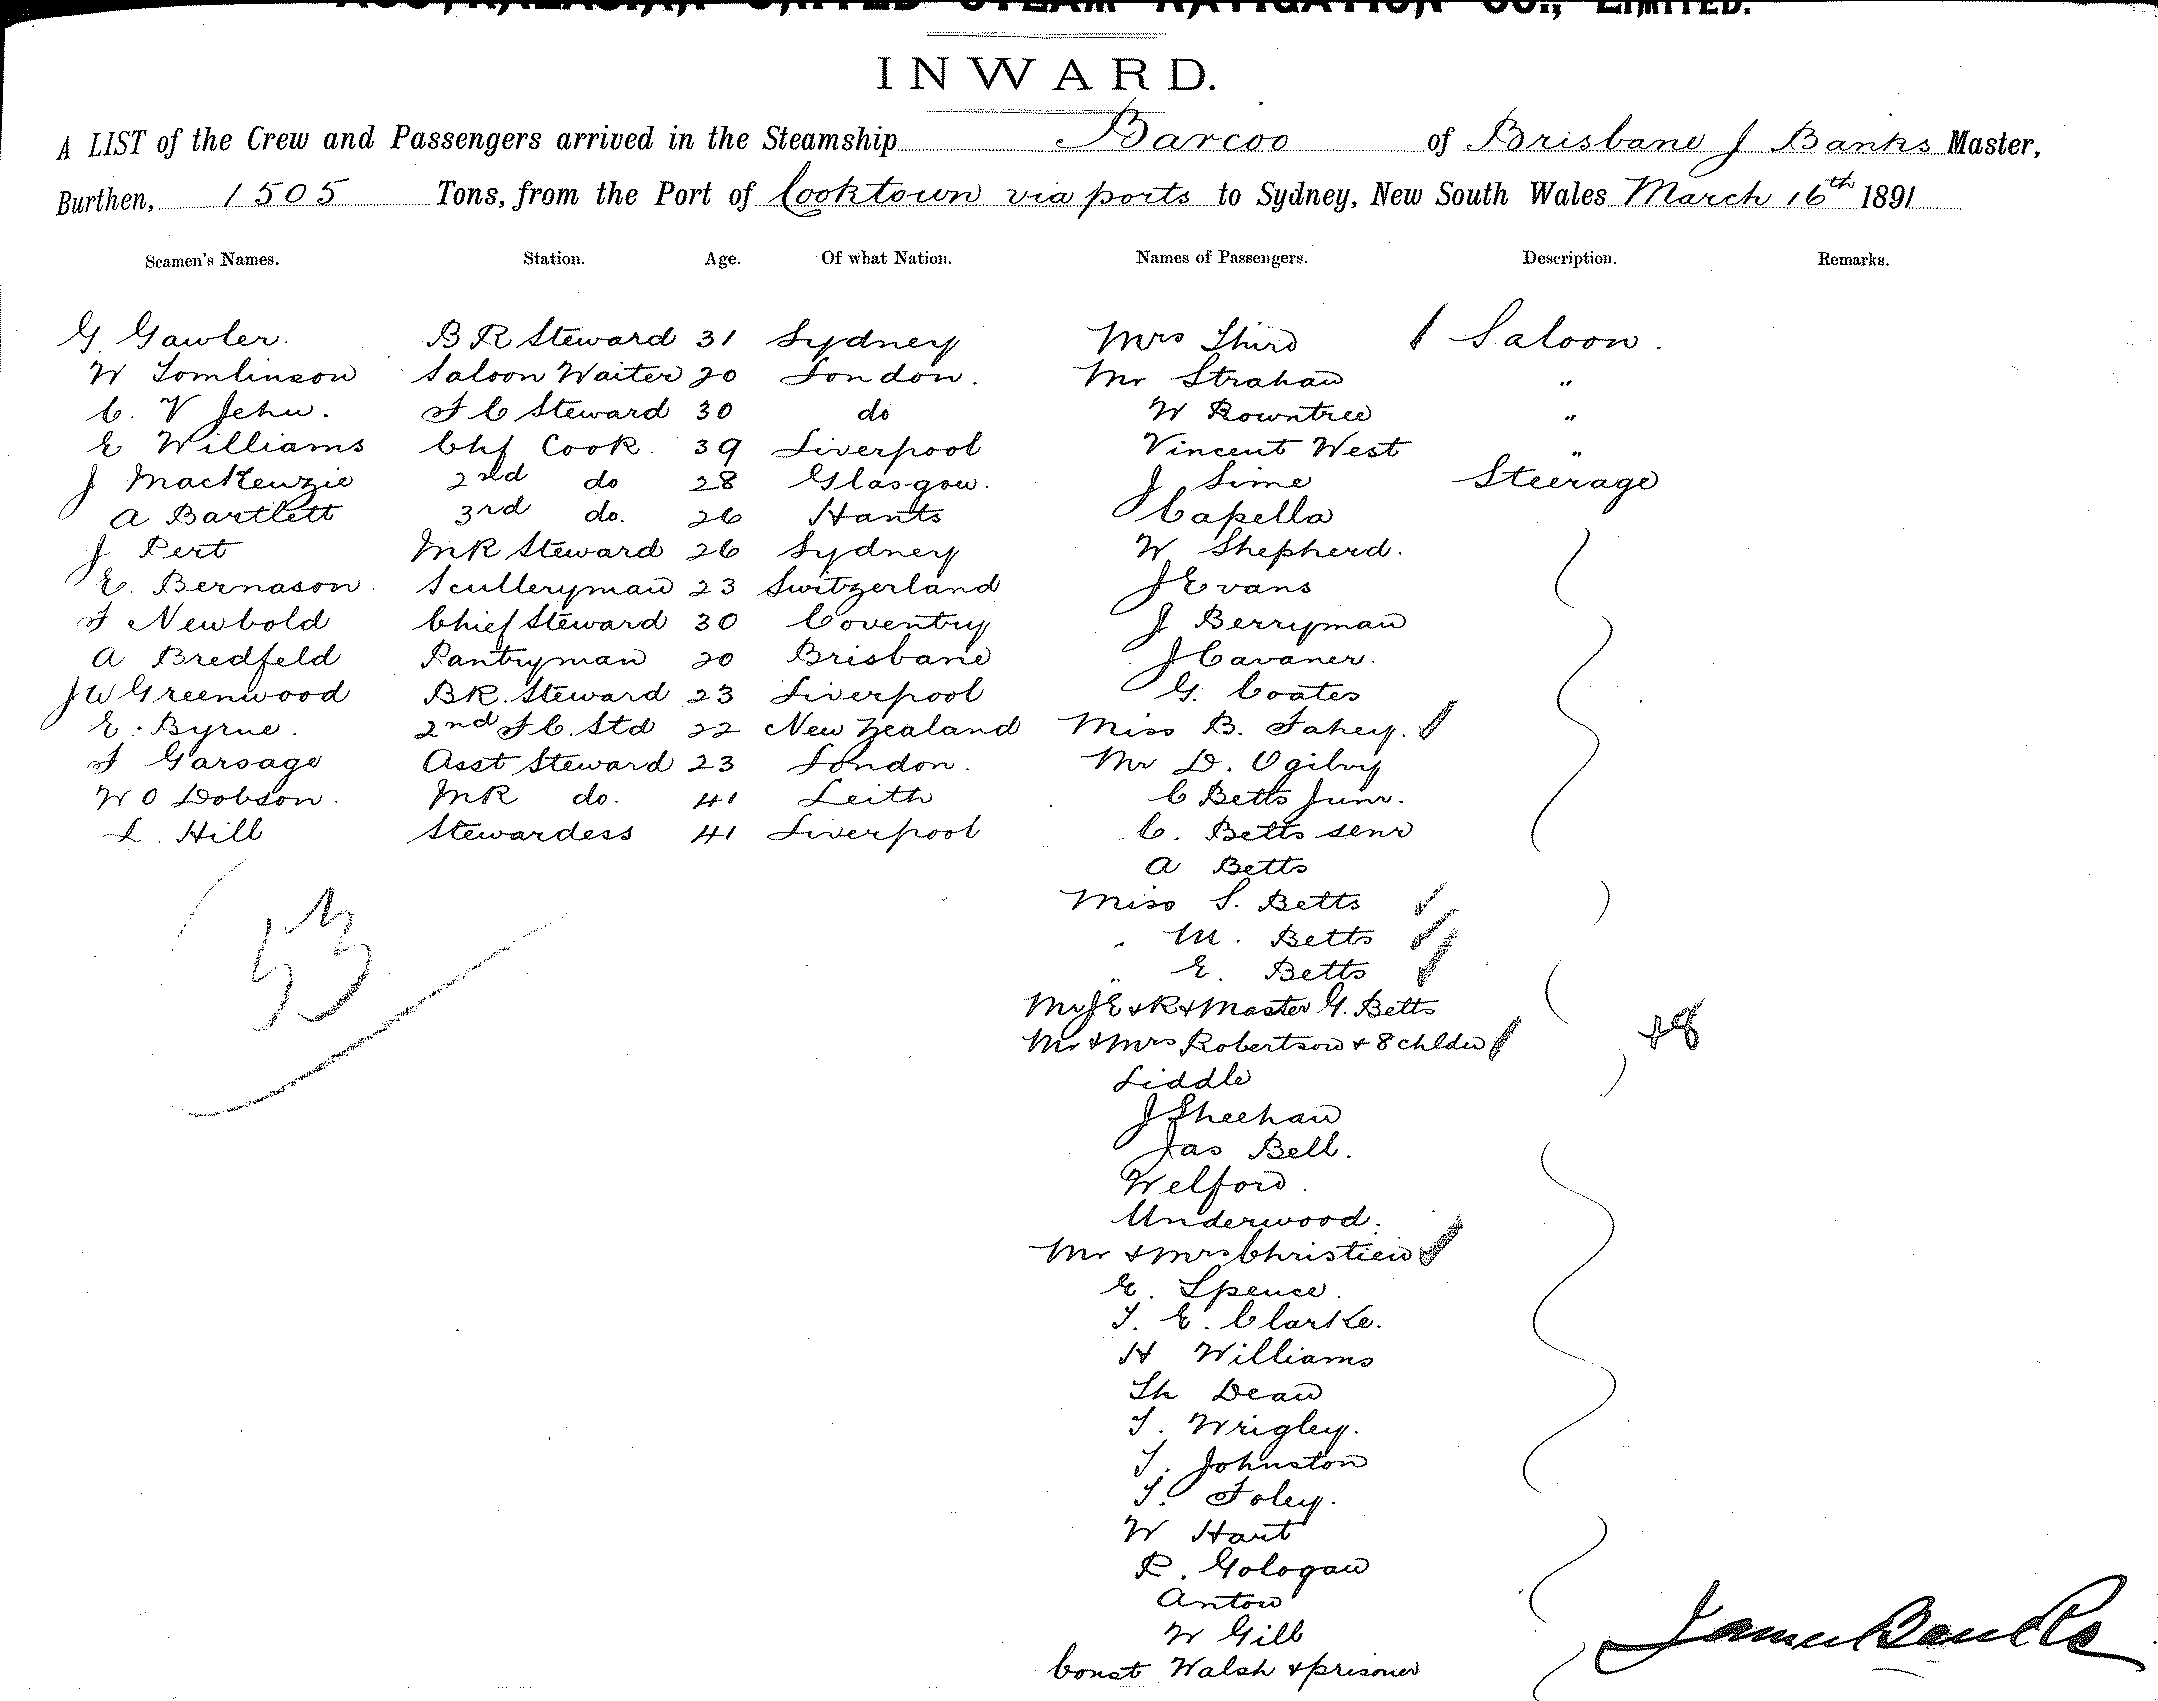 AUSTRALASIAN UNITED STEAM NAVIGATION CO., LIMITED.
INWARD.
A LIST of the Crew and Passengers arrived in the Steamship Barcoo of Brisbane J Banks Master,
Burthen, 1505 Tons, from the Port of Cooktown via ports to Sydney, New South Wales March 16th 1891
Seamen's Names. Station. Age. Of what Nation. Names of Passengers. Description. Remarks.
G Gawler. B R Steward 31 Sydney Mrs Third Saloon.
W Tomlinson Saloon Waiter 20 London. Mr Strahan "
C. V Jehu. F C Steward 30 do W Rowntree "
E Williams Chf Cook. 39 Liverpool Vincent West "
J MacKenzie 2nd do 28 Glasgow. J Sime Steerage
A Bartlett 3rd do. 26 Hants Capella
J Pert MR Steward 26 Sydney W Shepherd.
E. Bernason. Sculleryman 23 Switzerland J Evans
F Newbold Chief Steward 30 Coventry J Berryman
A Bredfeld Pantryman 20 Brisbane J Cavaner.
J W Greenwood BR. Steward 23 Liverpool G. Coates
E. Byrne. 2nd F C. Std 22 New Zealand Miss B. Fahey.
F Garsage Asst Steward 23 London. Mr D. Ogilvy
W O Dobson. MR do. 41 Leith C Betts Junr.
L. Hill Stewardess 41 Liverpool C. Betts senr
A Betts
Miss S. Betts
" M. Betts
" E. Betts
Mr J E & R & Master G. Betts
Mr & Mrs Robertson & 8 chldn
Liddle
J Sheehan
Jas Bell.
Welford.
Underwood.
Mr & Mrs Christien
E. Spence.
T. E. Clarke.
H Williams
Th Dean
T. Wrigley.
T. Johnston
T. Foley.
W Hart
R. Gologan
Anton
W Gill
Const Walsh & prisoner
53
+8
James Banks